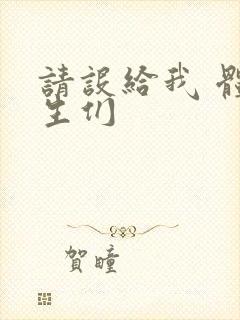 請設給我 體
生们
賀瞳